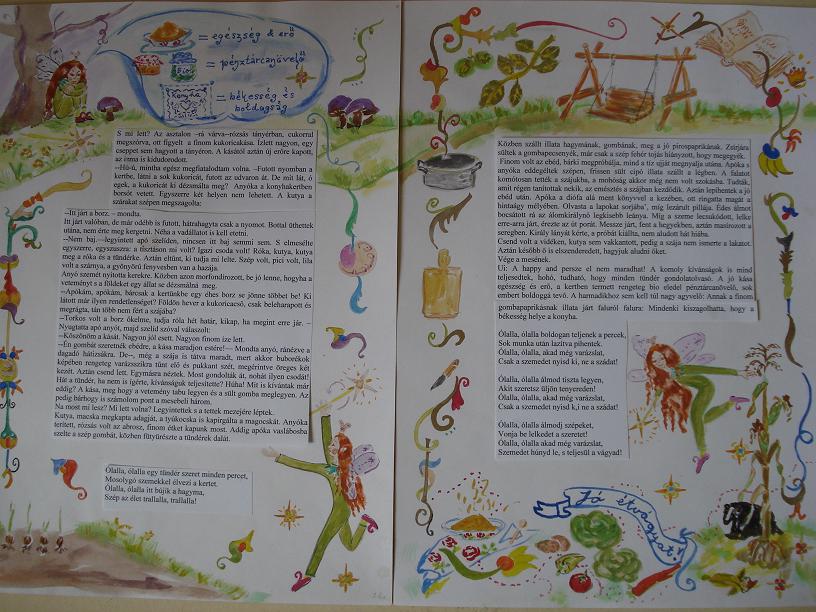 = egészség & erő
= pénztárcanövelő
Bio
Konyha
= békesség és
boldogság
S mi lett? Az asztalon –rá várva–rózsás tányérban, cukorral
megszórva, ott figyelt a finom kukoricakása. Ízlett nagyon, egy
cseppet sem hagyott a tányéron. A kásától aztán új erőre kapott,
az izma is kidudorodott.
–Hú-ú, mintha egész megfiatalodtam volna. –Futott nyomban a
kertbe, látni a sok kukoricát, futott az udvaron át. De mit lát, ó
egek, a kukoricát ki dézsmálta meg? Anyóka a konyhakertben
borsót vetett. Egyszerre két helyen nem lehetett. A kutya a
szárakat szépen megszagolta:
–Itt járt a borz. – mondta.
Itt járt valóban, de már odébb is futott, hátrahagyta csak a nyomot. Bottal üthettek
utána, nem érte meg kergetni. Néha a vadállatot is kell etetni.
–Nem baj.—legyintett apó szelíden, nincsen itt baj semmi sem. S elmesélte
egyszerre, egyszuszra: a tisztáson mi volt? Igazi csoda volt! Róka, kutya, kutya
meg a róka és a tündérke. Aztán eltűnt, ki tudja mi lelte. Szép volt, pici volt, lila
volt a szárnya, a gyönyörű fenyvesben van a hazája.
Anyó szemét nyitotta kerekre. Közben azon morfondírozott, be jó lenne, hogyha a
veteményt s a földeket egy állat se dézsmálná meg.
–Apókám, apókám, bárcsak a kertünkbe egy éhes borz se jönne többet be! Ki
látott már ilyen rendetlenséget? Földön hever a kukoricacső, csak beleharapott és
megrágta, tán több nem fért a szájába?
–Torkos volt a borz őkelme, tudja róla hét határ, kikap, ha megint erre jár. –
Nyugtatta apó anyót, majd szelíd szóval válaszolt:
–Köszönöm a kását. Nagyon jól esett. Nagyon finom íze lett.
–Én gombát szeretnék ebédre, a kása maradjon estére!— Mondta anyó, ránézve a
dagadó hátizsákra. De--, még a szája is tátva maradt, mert akkor buborékok
képében rengeteg varázsszikra tűnt elő és pukkant szét, megérintve öreges két
kezét. Aztán csend lett. Egymásra néztek. Most gondolták át, nohát ilyen csodát!
Hát a tündér, ha nem is ígérte, kívánságuk teljesítette? Húha! Mit is kívántak már
eddig? A kása, meg hogy a vetemény tabu legyen és a sült gomba meglegyen. Az
pedig bárhogy is számolom pont a mesebeli három.
Na most mi lesz? Mi lett volna? Legyintettek s a tettek mezejére léptek.
Kutya, macska megkapta adagját, a tyúkocska is kapirgálta a magocskát. Anyóka
terített, rózsás volt az abrosz, finom étket kapunk most. Addig apóka vaslábosba
szelte a szép gombát, közben fütyürészte a tündérek dalát.
Ólalla, ólalla egy tündér szeret minden percet,
Mosolygó szemekkel élvezi a kertet.
Ólalla, ólalla itt bújik a hagyma,
Szép az élet trallalla, trallalla!
Közben szállt illata hagymának, gombának, meg a jó pirospaprikának. Zsírjára
sültek a gombapecsenyék, már csak a szép fehér tojás hiányzott, hogy megegyék.
Finom volt az ebéd, bárki megpróbálja, mind a tíz ujját megnyalja utána. Apóka s
anyóka eddegéltek szépen, frissen sült cipó illata szállt a légben. A falatot
komótosan tették a szájukba, a mohóság akkor még nem volt szokásba. Tudták,
amit régen tanítottak nekik, az emésztés a szájban kezdődik. Aztán lepihentek a jó
ebéd után. Apóka a diófa alá ment könyvvel a kezében, ott ringatta magát a
hintaágy mélyében. Olvasta a lapokat sorjába', míg lezárult pillája. Édes álmot
bocsátott rá az álomkirálynő legkisebb leánya. Míg a szeme lecsukódott, lelke
erre-arra járt, érezte az út porát. Messze járt, fent a hegyekben, aztán masírozott a
seregben. Király lányát kérte, a próbát kiállta, nem aludott hát hiába.
Csend volt a vidéken, kutya sem vakkantott, pedig a szája nem ismerte a lakatot.
Aztán később ő is elszenderedett, hagyjuk aludni őket.
Vége a mesének.
Ui: A happy and persze el nem maradhat! A komoly kívánságok is mind
teljesedtek, hohó, tudható, hogy minden tündér gondolatolvasó. A jó kása
egészség és erő, a kertben termett rengeteg bio eledel pénztárcanövelő, sok
embert boldoggá tevő. A harmadikhoz sem kell túl nagy agyvelő: Annak a finom
gombapaprikásnak illata járt faluról falura: Mindenki kiszagolhatta, hogy a
békesség helye a konyha.
Ólalla, ólalla boldogan teljenek a percek,
Sok munka után lazítva pihentek.
Ólalla, ólalla, akad még varázslat,
Csak a szemedet nyisd ki, ne a szádat!
Ólalla, ólalla álmod tiszta legyen,
Akit szeretsz üljön tenyereden!
Ólalla, ólalla, akad még varázslat,
Csak a szemedet nyisd ki,ne a szádat!
Ólalla, ólalla álmodj szépeket,
Vonja be lelkedet a szeretet!
Ólalla, ólalla akad még varázslat,
Szemedet húnyd le, s teljesül a vágyad!
Jó étvágyat!